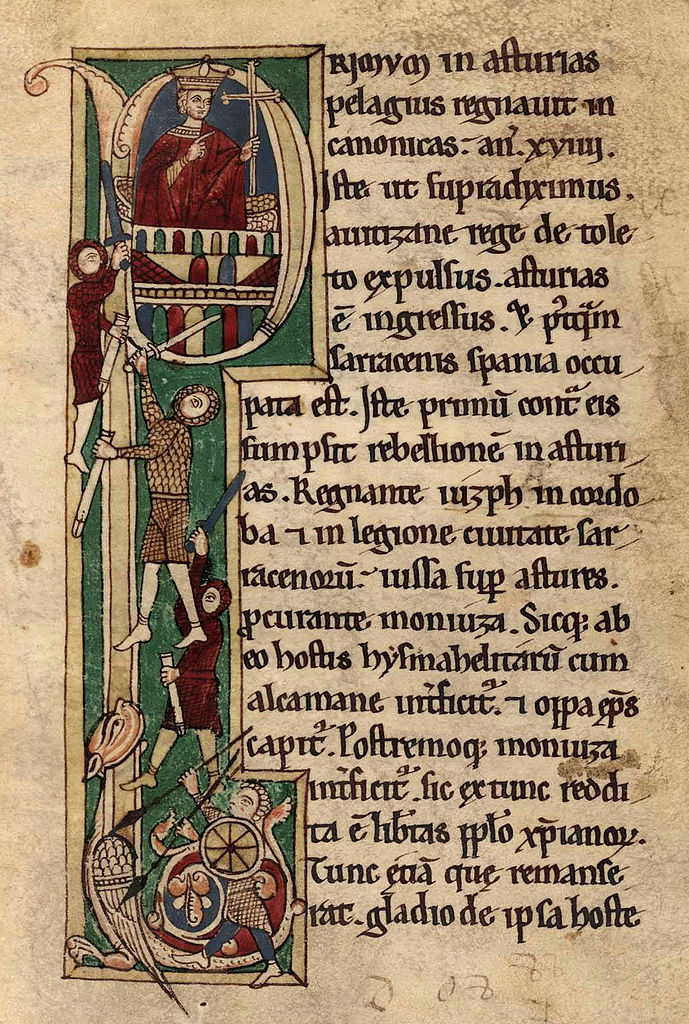 PRIMUM in asturias
pelagius regnauit in
canonicas. an̄. xviiii.
Iste ut supradiximus.
auitizane rege de tole
to expulsus. asturias
ē ingressus. & p̄tq̄m
sarracenis spania occu
pata est. Iste primū cont̄ eis
sumpsit rebellionē in asturi
as. Regnante iuzph in cordo
ba ⁊ in legione ciuitate sar
racenorū. iussa sup̄ astures.
ꝓcurante moniuza. Sicq; ab
eo hostis hysmahelitarū cum
alcamane int̄ficit᷑. ⁊ oppa ep̄s
capit᷑. Postremoq; moniuza
int̄ficit᷑. sic ex tunc reddi
ta ē lib̄tas pp̄lo xp̄ianoꝝ.
Tunc etiā quę remanse
rat. gladio de ipsa hoste